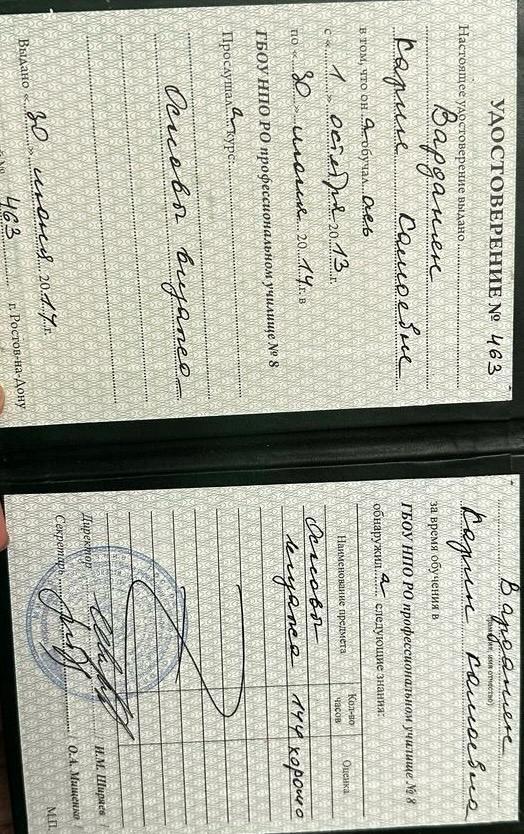 УДОСТОВЕРЕНИЕ № 463
Настоящее удостоверение выдано
Варданен
Карине Самоевне
в том, что он а обучал ась
с « 1 » октября 20 13 г.
по « 30 » июня 20 14 г. в
ГБОУ НПО РО профессиональном училище № 8
Прослушал а курс:
Основы визажа
Выдано « 30 » июня 20 14 г.
463 г. Ростов-на-Дону
Варданен
(фамилия, имя отчество)
Карине Самоевна
за время обучения в
ГБОУ НПО РО профессиональном училище № 8
обнаружил а следующие знания:
Наименование предмета Кол-во часов Оценка
Основы визажа 144 хорошо
Директор / Н.М. Ширяев /
Секретарь / О.А. Мищенко /
М.П.